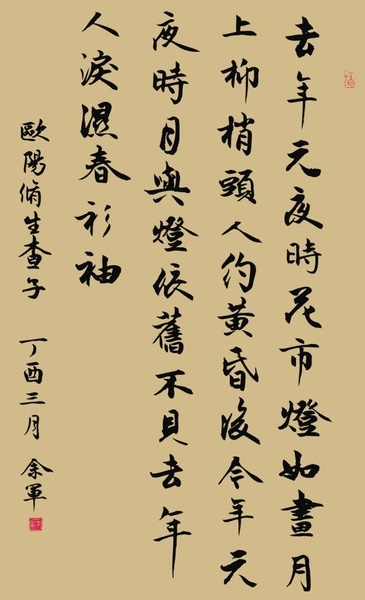 去年元夜時花市燈如晝月
上柳梢頭人約黃昏後今年元
夜時月與燈依舊不見去年
人淚濕春衫袖
歐陽脩生查子 丁酉三月 余軍